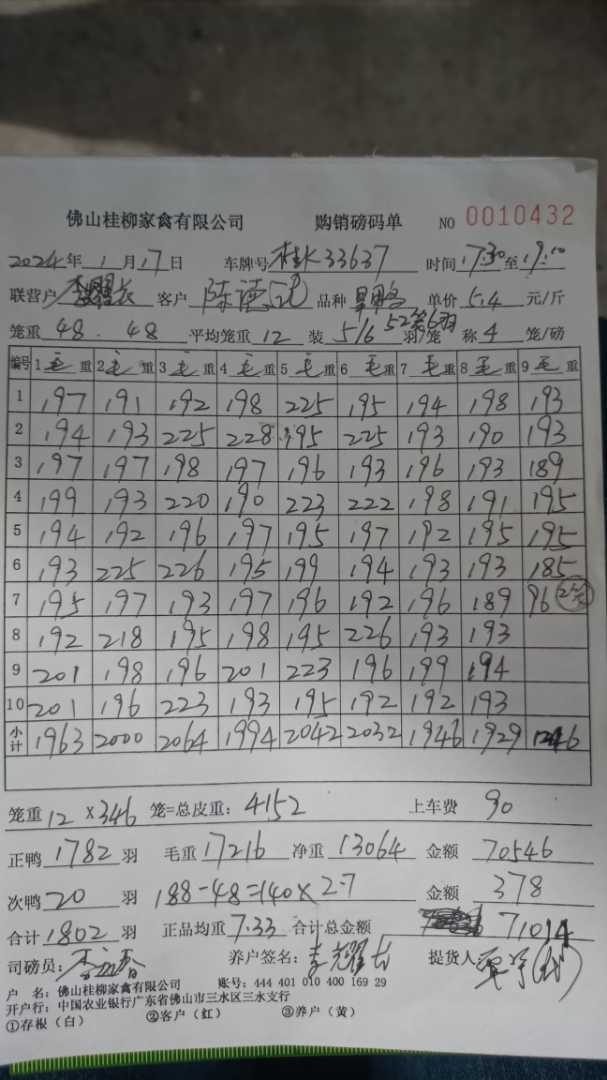 佛山桂柳家禽有限公司 购销磅码单 NO 0010432
2024年 1 月 17 日 车牌号 桂K33637 时间 17.30 至 19.00
联营户 李耀长 客户 陈德记 品种 单价 5.4 元/斤
笼重 48. 48 平均笼重 12 装 5/6 52笼6羽 羽/笼 称 4 笼/磅
编号 1 毛 重 2 毛 重 3 毛 重 4 毛 重 5 毛 重 6 毛 重 7 毛 重 8 毛 重 9 毛 重
1 197 191 192 198 225 195 194 198 193
2 194 193 225 228 195 225 193 190 193
3 197 197 198 197 196 193 196 193 189
4 199 193 220 190 223 222 198 191 195
5 194 192 196 197 195 197 192 195 195
6 193 225 226 195 199 194 193 193 185
7 195 197 193 197 196 192 196 189 96 2笼
8 192 218 195 198 195 226 193 193
9 201 198 196 201 223 196 199 194
10 201 196 223 193 195 192 192 193
小计 1963 2000 2064 1994 2042 2032 1946 1929 1246
笼重 12 ×346 笼=总皮重: 4152 上车费 90
正鸭 1782 羽 毛重 17216 净重 13064 金额 70546
次鸭 20 羽 188-48=140×2.7 金额 378
合计 1802 羽 正品均重 7.33 合计总金额 71014
司磅员: 养户签名: 李耀长 提货人
户 名: 佛山桂柳家禽有限公司 账号: 444 401 010 400 169 29
开户行: 中国农业银行广东省佛山市三水区三水支行
①存根（白） ②客户（红） ③养户（黄）